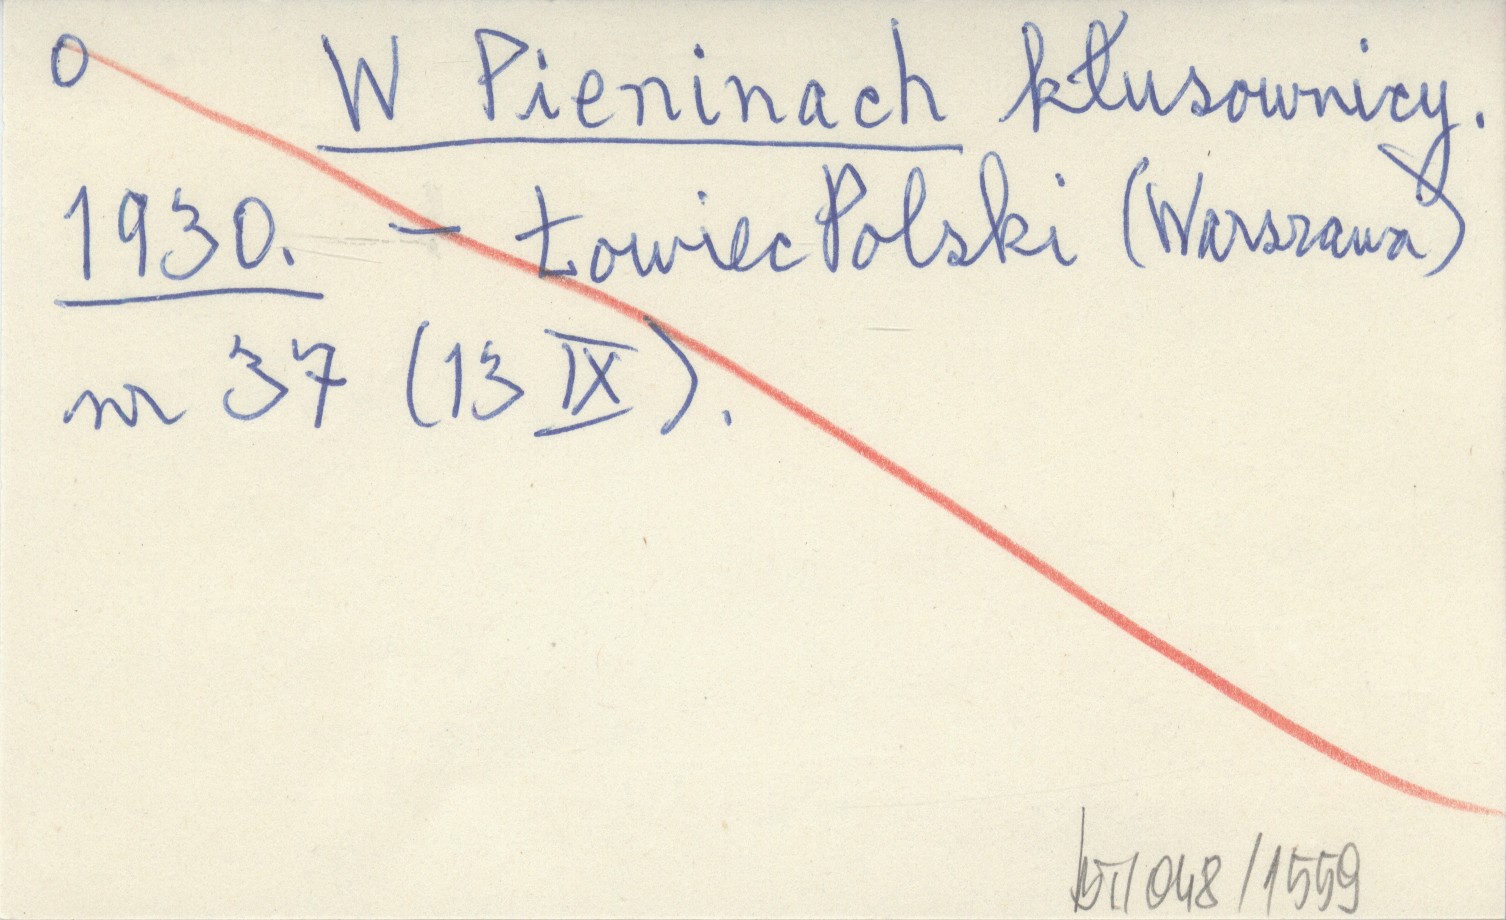 O W Pieninach kłusownicy.
1930. — Łowiec Polski (Warszawa)
nr 37 (13 IX).
/048/1559